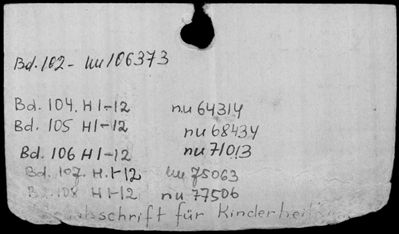 Bd. 102 - nu 106373
Bd. 104. H 1-12 nu 64314
Bd. 105 H 1-12 nu 68434
Bd. 106 H 1-12 nu 71013
Bd. 107. H. 1-12 nu 75063
Bd. 108 H 1-12 nu 77506
für Kinderheil